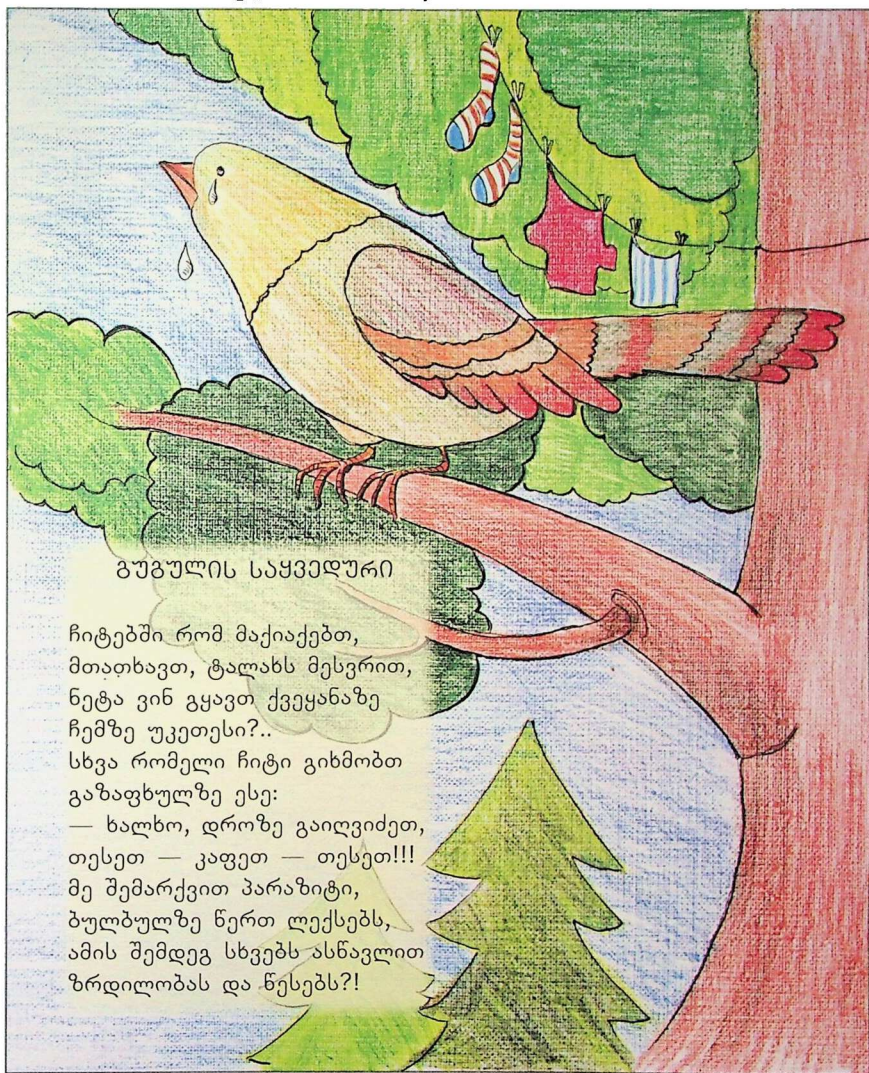 გუგულის საყვედური
ჩიტებში რომ მაქიაქებთ,
მთათხავთ, ტალახს მესვრით,
ნეტა ვინ გყავთ ქვეყანაზე
ჩემზე უკეთესი?..
სხვა რომელი ჩიტი გიხმობთ
გაზაფხულზე ესე:
— ხალხო, დროზე გაიღვიძეთ,
თესეთ — კაფეთ — თესეთ!!!
მე შემარქვით პარაზიტი,
ბულბულზე წერთ ლექსებს,
ამის შემდეგ სხვებს ასწავლით
ზრდილობას და წესებს?!